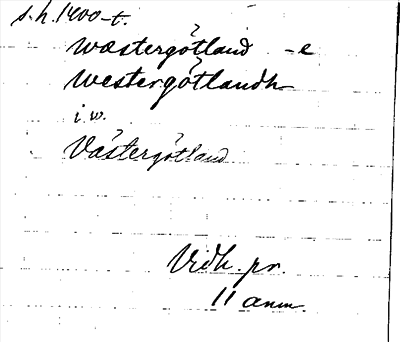 s. h. 1400-t.
wæstergötland -e
westergötlandh
i w.
Västergötland
Vidh. pr.
11 anm.